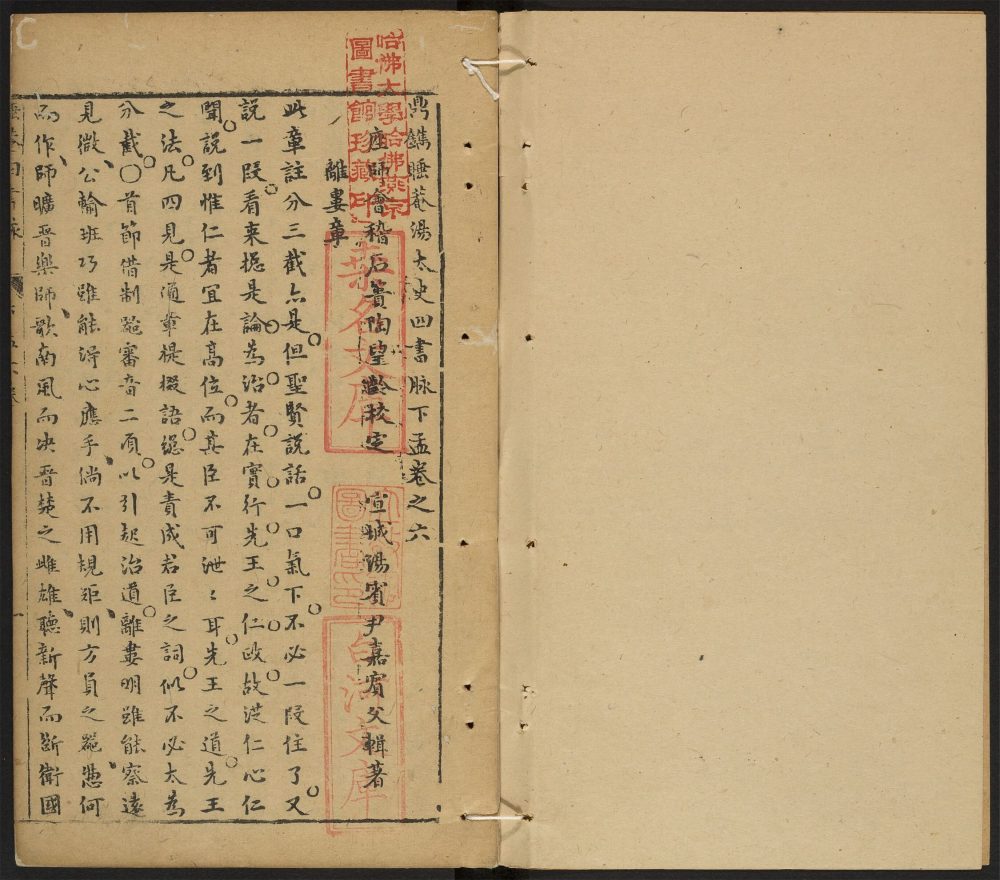 鼎鐫睡菴湯太史四書脉下孟卷之六
座師會稽石簣陶望齡校定 宣城湯賓尹嘉賓父輯著
離婁章
此章註分三截亦是但聖賢説話一口氣下不必一段住了又
説一段看来揔是論為治者在實行先王之仁政故從仁心仁
聞説到惟仁者宜在髙位而其臣不可泄〻耳先王之道先王
之法凡四見是通章提掇語緫是責成君臣之詞似不必太為
分截〇首節借制噐審音二項以引起治道離婁明雖能察遠
見微公輸班巧雖能得心應手倘不用規矩則方員之噐慿何
而作師曠晋樂師歌南風而决晋楚之雌雄聽新聲而斷衛國
哈佛大學哈佛燕京
圖書館珍藏印